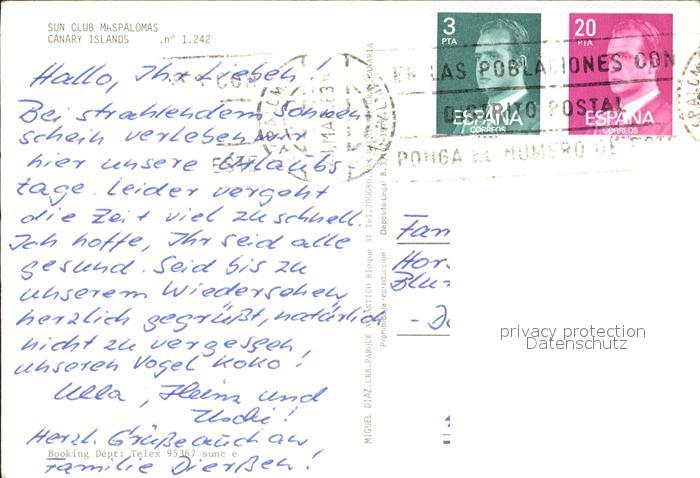 SUN CLUB MASPALOMAS
CANARY ISLANDS .nº 1.242
Hallo, Ihr Lieben!
Bei strahlendem Sonnen-
schein verleben wir
hier unsere Urlaubs-
tage. Leider vergeht
die Zeit viel zu schnell.
Ich hoffe, Ihr seid alle
gesund. Seid bis zu
unserem Wiedersehen
herzlich gegrüßt, natürlich
nicht zu vergessen
unseren Vogel Koko!
Ulla, Heinz und
Uschi!
Herzl. Grüße auch an
Familie Dierßen!
Booking Dept: Telex 95367 sunc e
MIGUEL DIAZ.URB.PARQUE ATLANTICO Bloque 31 Tel.
Prohibida la reproduccion
Deposito Legal B.
3
PTA
ESPAÑA
CORREOS
20
PTA
ESPAÑA
CORREOS
EN LAS POBLACIONES CON
DISTRITO POSTAL
PONGA EL NUMERO DE
Fam
Hor
Blu
privacy protection
Datenschutz